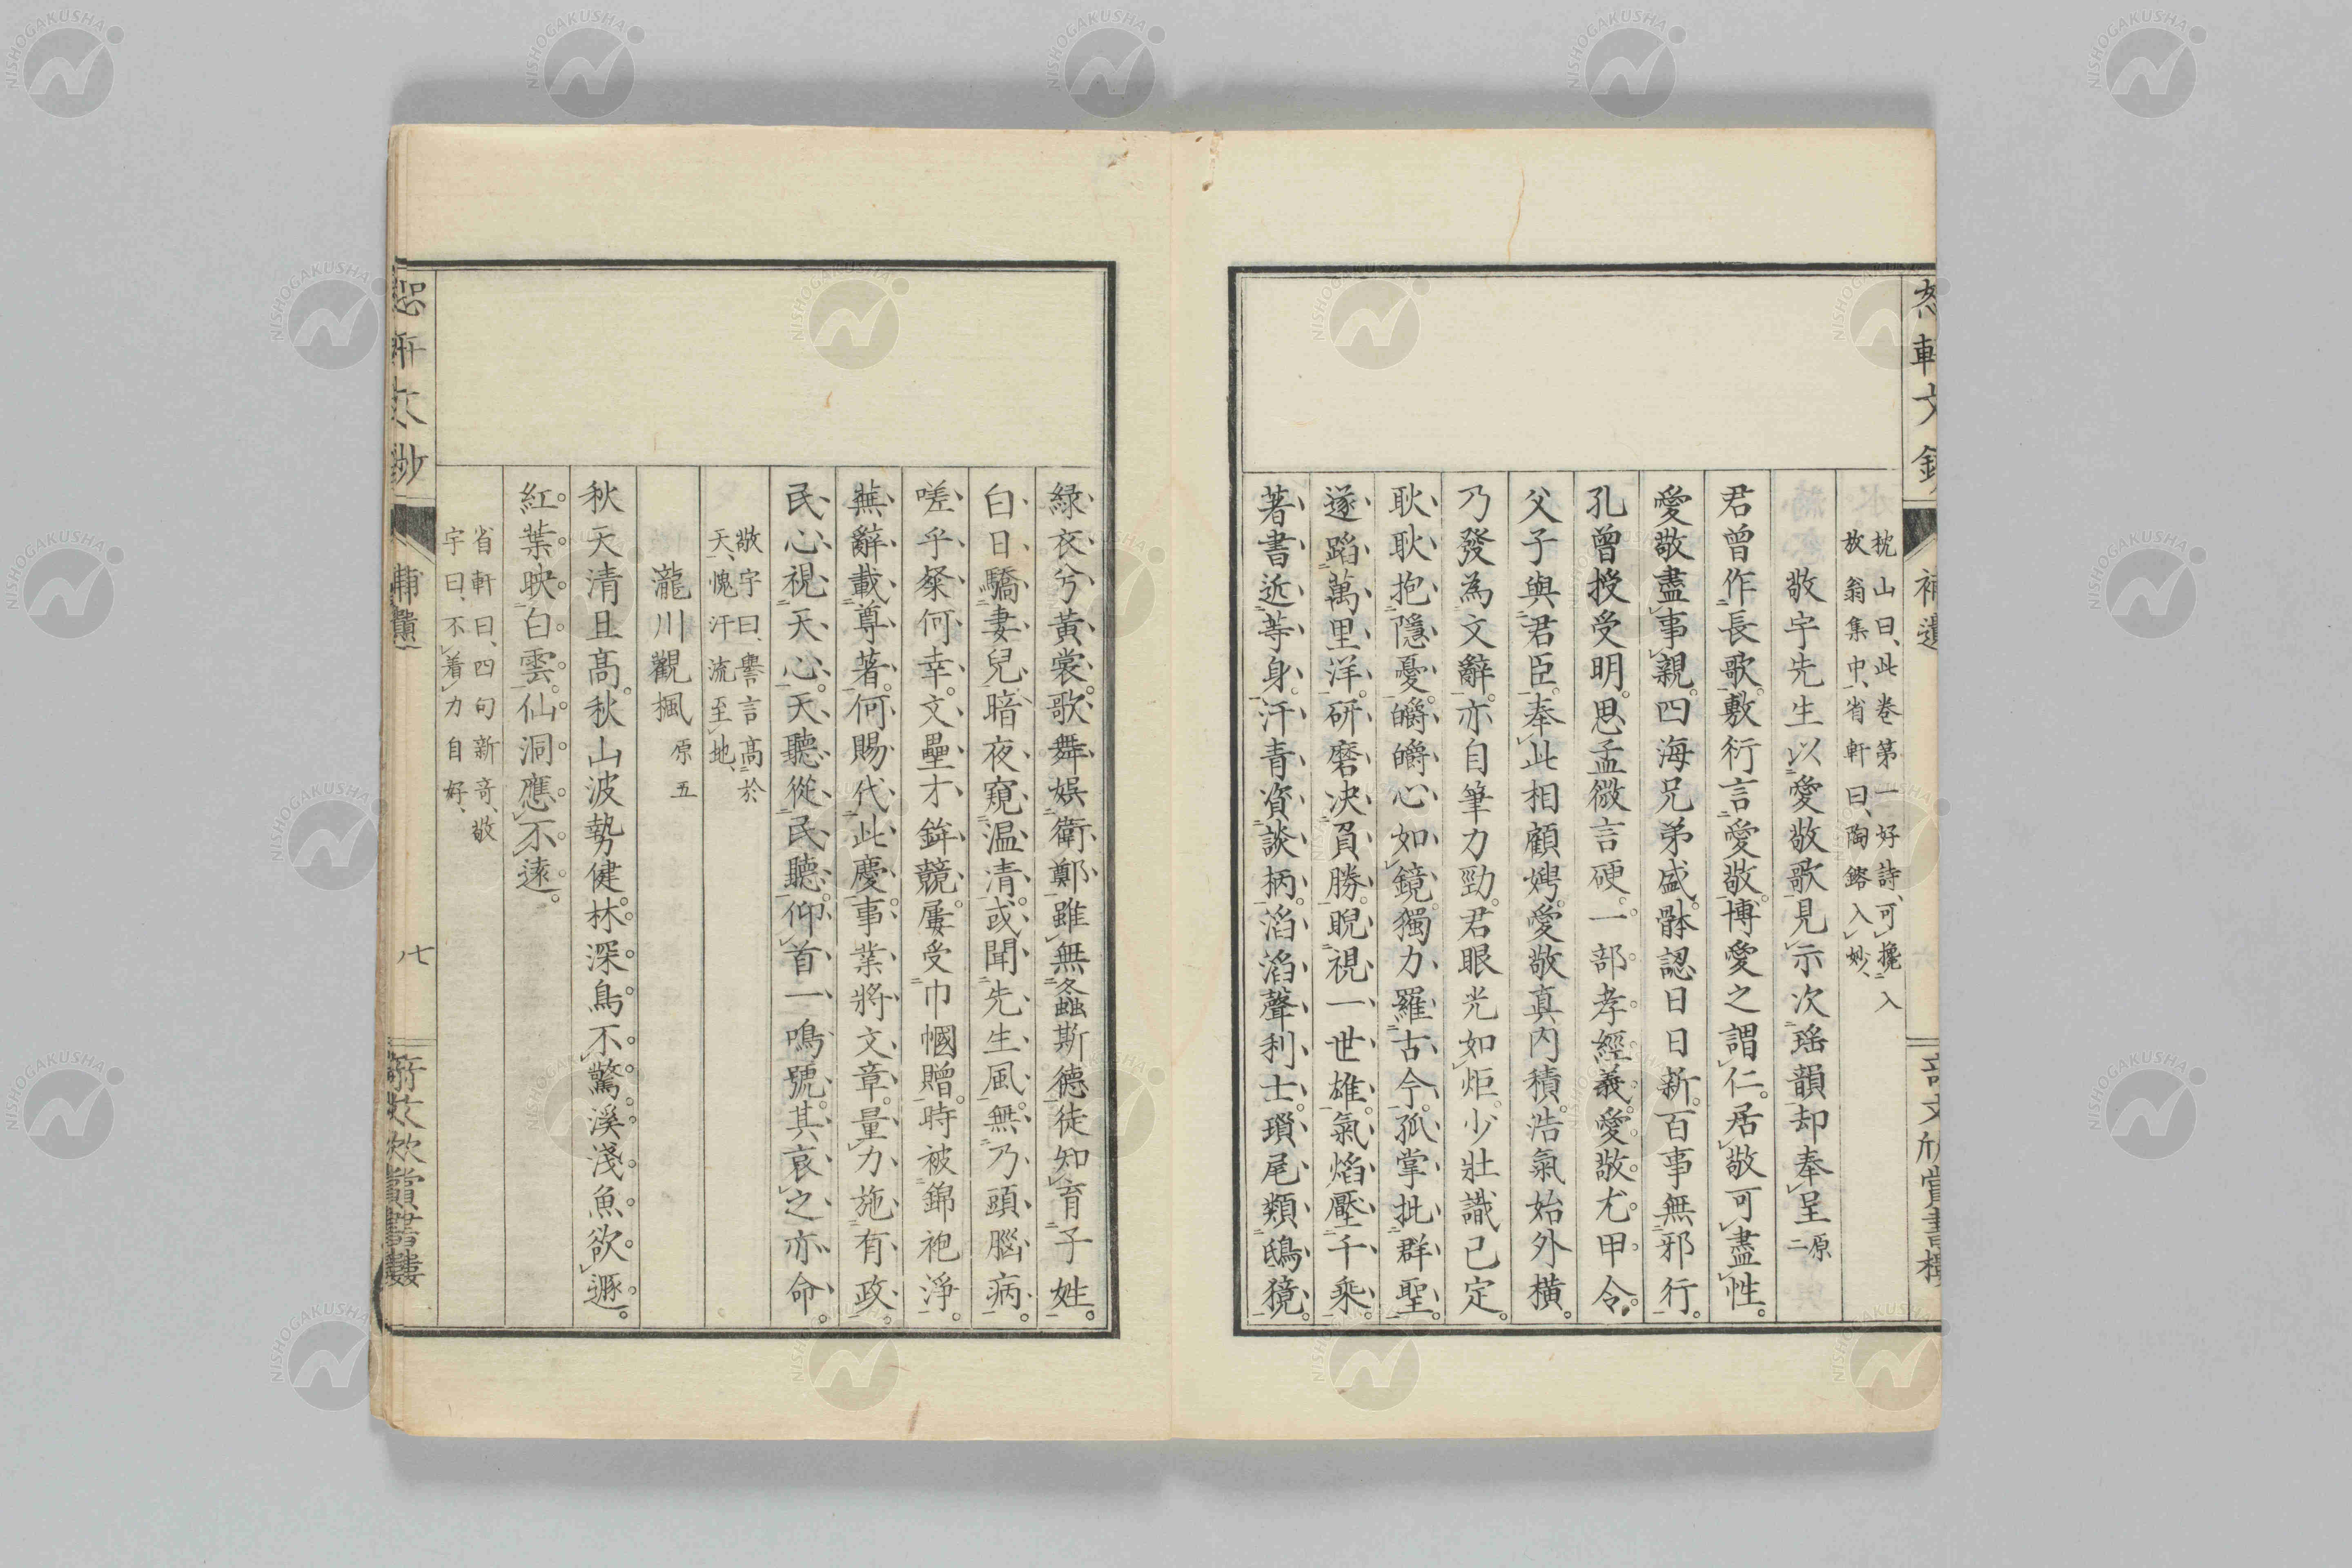 枕山曰、此卷第一好詩、可攙入
放翁集中、省軒曰、陶鎔入妙、
敬宇先生以愛敬歌見示次瑤韻却奉呈 原二
君曾作長歌。敷衍言愛敬。博愛之謂仁。居敬可盡性。
愛敬盡事親。四海兄弟盛。體認日日新。百事無邪行。
孔曾授受明。思孟微言硬。一部孝經義。愛敬尤甲令。
父子與君臣。奉此相顧娉。愛敬真內積。浩氣始外橫。
乃發為文辭。亦自筆力勁。君眼光如炬。少壯識已定。
耿耿抱隱憂。皭皭心如鏡。獨力羅古今。孤掌批群聖。
遂蹈萬里洋。研磨決負勝。睨視一世雄。氣焰壓千乘。
著書近等身。汗青資談柄。滔滔聲利士。瑣尾類鴟獍。
綠衣兮黃裳。歌舞娛衛鄭。雖無螽斯德。徒知育子姓。
白日驕妻兒。暗夜窺温凊。或聞先生風。無乃頭腦病。
嗟乎粲何幸。文壘才鉾競。屢受巾幗贈。時被錦袍淨。
蕪辭載尊著。何賜代此慶。事業將文章。量力施有政。
民心視天心。天聽從民聽。仰首一鳴號。其哀之亦命。
敬宇曰、譽言高於
天、愧汗流至地、
瀧川觀楓 原五
秋天清且高。秋山波勢健。林深鳥不驚。溪淺魚欲遯。
紅葉映白雲。仙洞應不遠。
省軒曰、四句新奇、敬
宇曰、不着力自好、
補遺
七